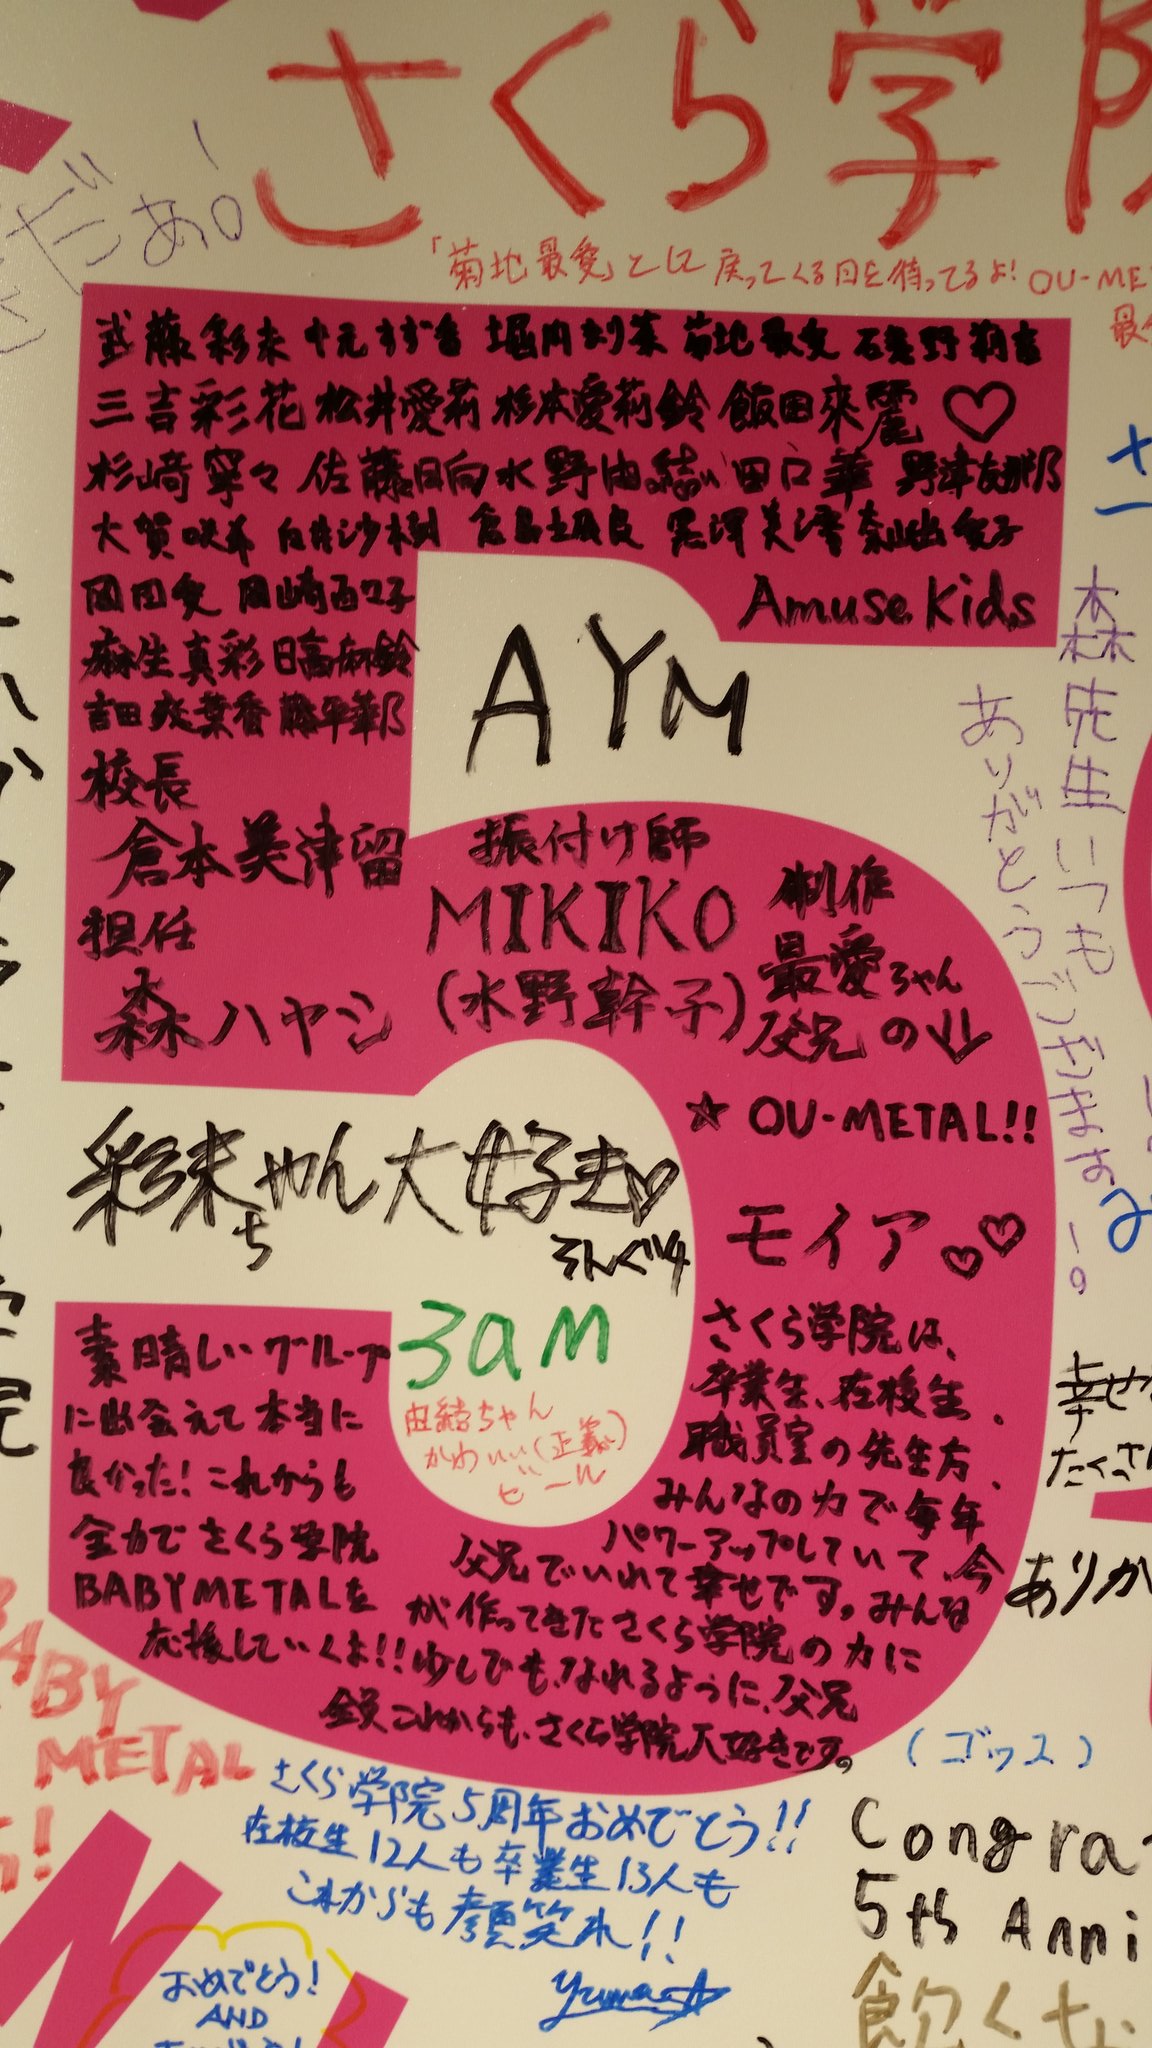 さくら学院
だぁ!
「菊地最愛」とに戻ってくる日を待ってるよ! OU-ME
武藤彩未 中元すず香 堀内まり菜 菊地最愛
三吉彩花 松井愛莉 杉本愛莉鈴 飯田來麗 ♡
杉﨑寧々 佐藤日向 水野由結 田口華 野津友那乃
大賀咲希 白井沙樹 倉島颯良 黒澤美澪奈 山出愛子
岡田愛 岡崎百々子
Amuse Kids
麻生真彩 日髙麻鈴
吉田爽葉香 藤平華乃
AYM
校長
倉本美津留
担任
森ハヤシ
振付け師
MIKIKO
(水野幹子)
制作
最愛ちゃん
父兄の
☆ OU-METAL!!
モイア♡♡
森先生いつも
ありがとうございます!。
彩未ちゃん大好き♡
ち
3am
由結ちゃん
かわいい(正義)
ビール
素晴しいグループ
に出会えて本当に
良かった! これからも
全力でさくら学院
BABYMETALを
応援していくよ!!
さくら学院は、
卒業生、在校生、
職員室の先生方、
みんなの力で毎年
パワーアップしていて、今
父兄でいれて幸せです。みんな
が作ってきたさくら学院の力に
少しでも、なれるように、父兄
全員これからも、さくら学院大好きです。
幸せ
たくさん
ありが
BABY
METAL
(ゴッス)
さくら学院5周年おめでとう!!
在校生12人も卒業生13人も
これからも顔笑れ!!
Yuma☆
Congra
5th Anni
おめでとう!
AND
飲くな